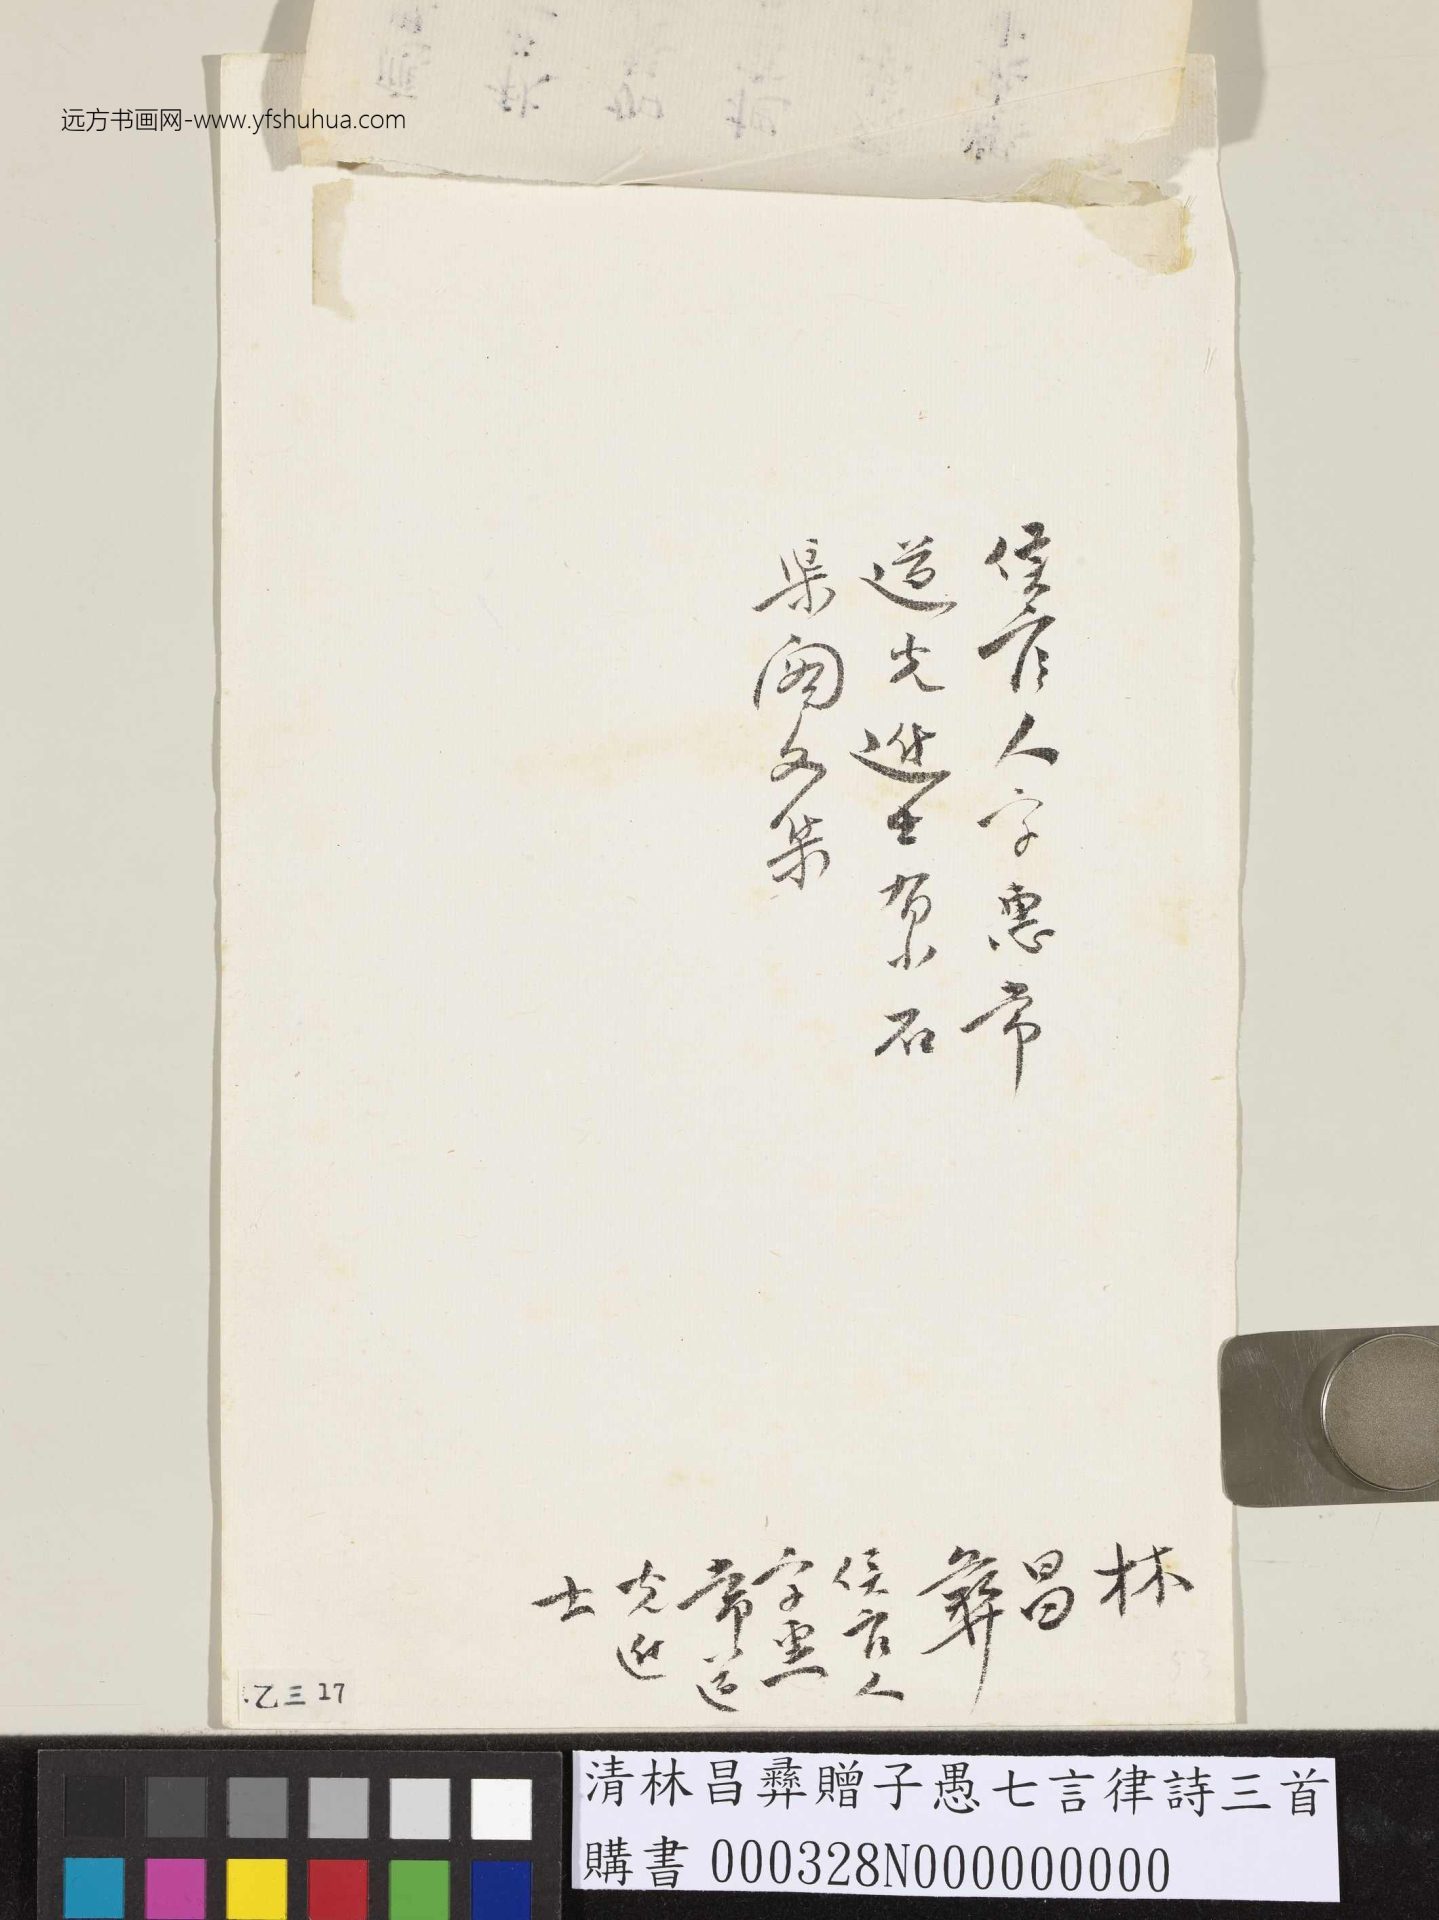 远方书画网-www.yfshuhua.com
侯官人字惠常
道光進士有小石
渠閣文集
林
昌
彝
侯官人
字惠
常道
光進
士
乙三17
清林昌彝贈子愚七言律詩三首
購書 000328N000000000